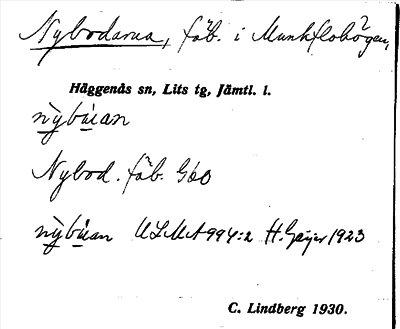 Nybodarna, fäb. i Munkflohögen,
Häggenås sn, Lits tg, Jämtl. l.
nỳbùan
Nybod. fäb. G60
nỳbùan ULMA 994:2 H. Geijer 1923
C. Lindberg 1930.